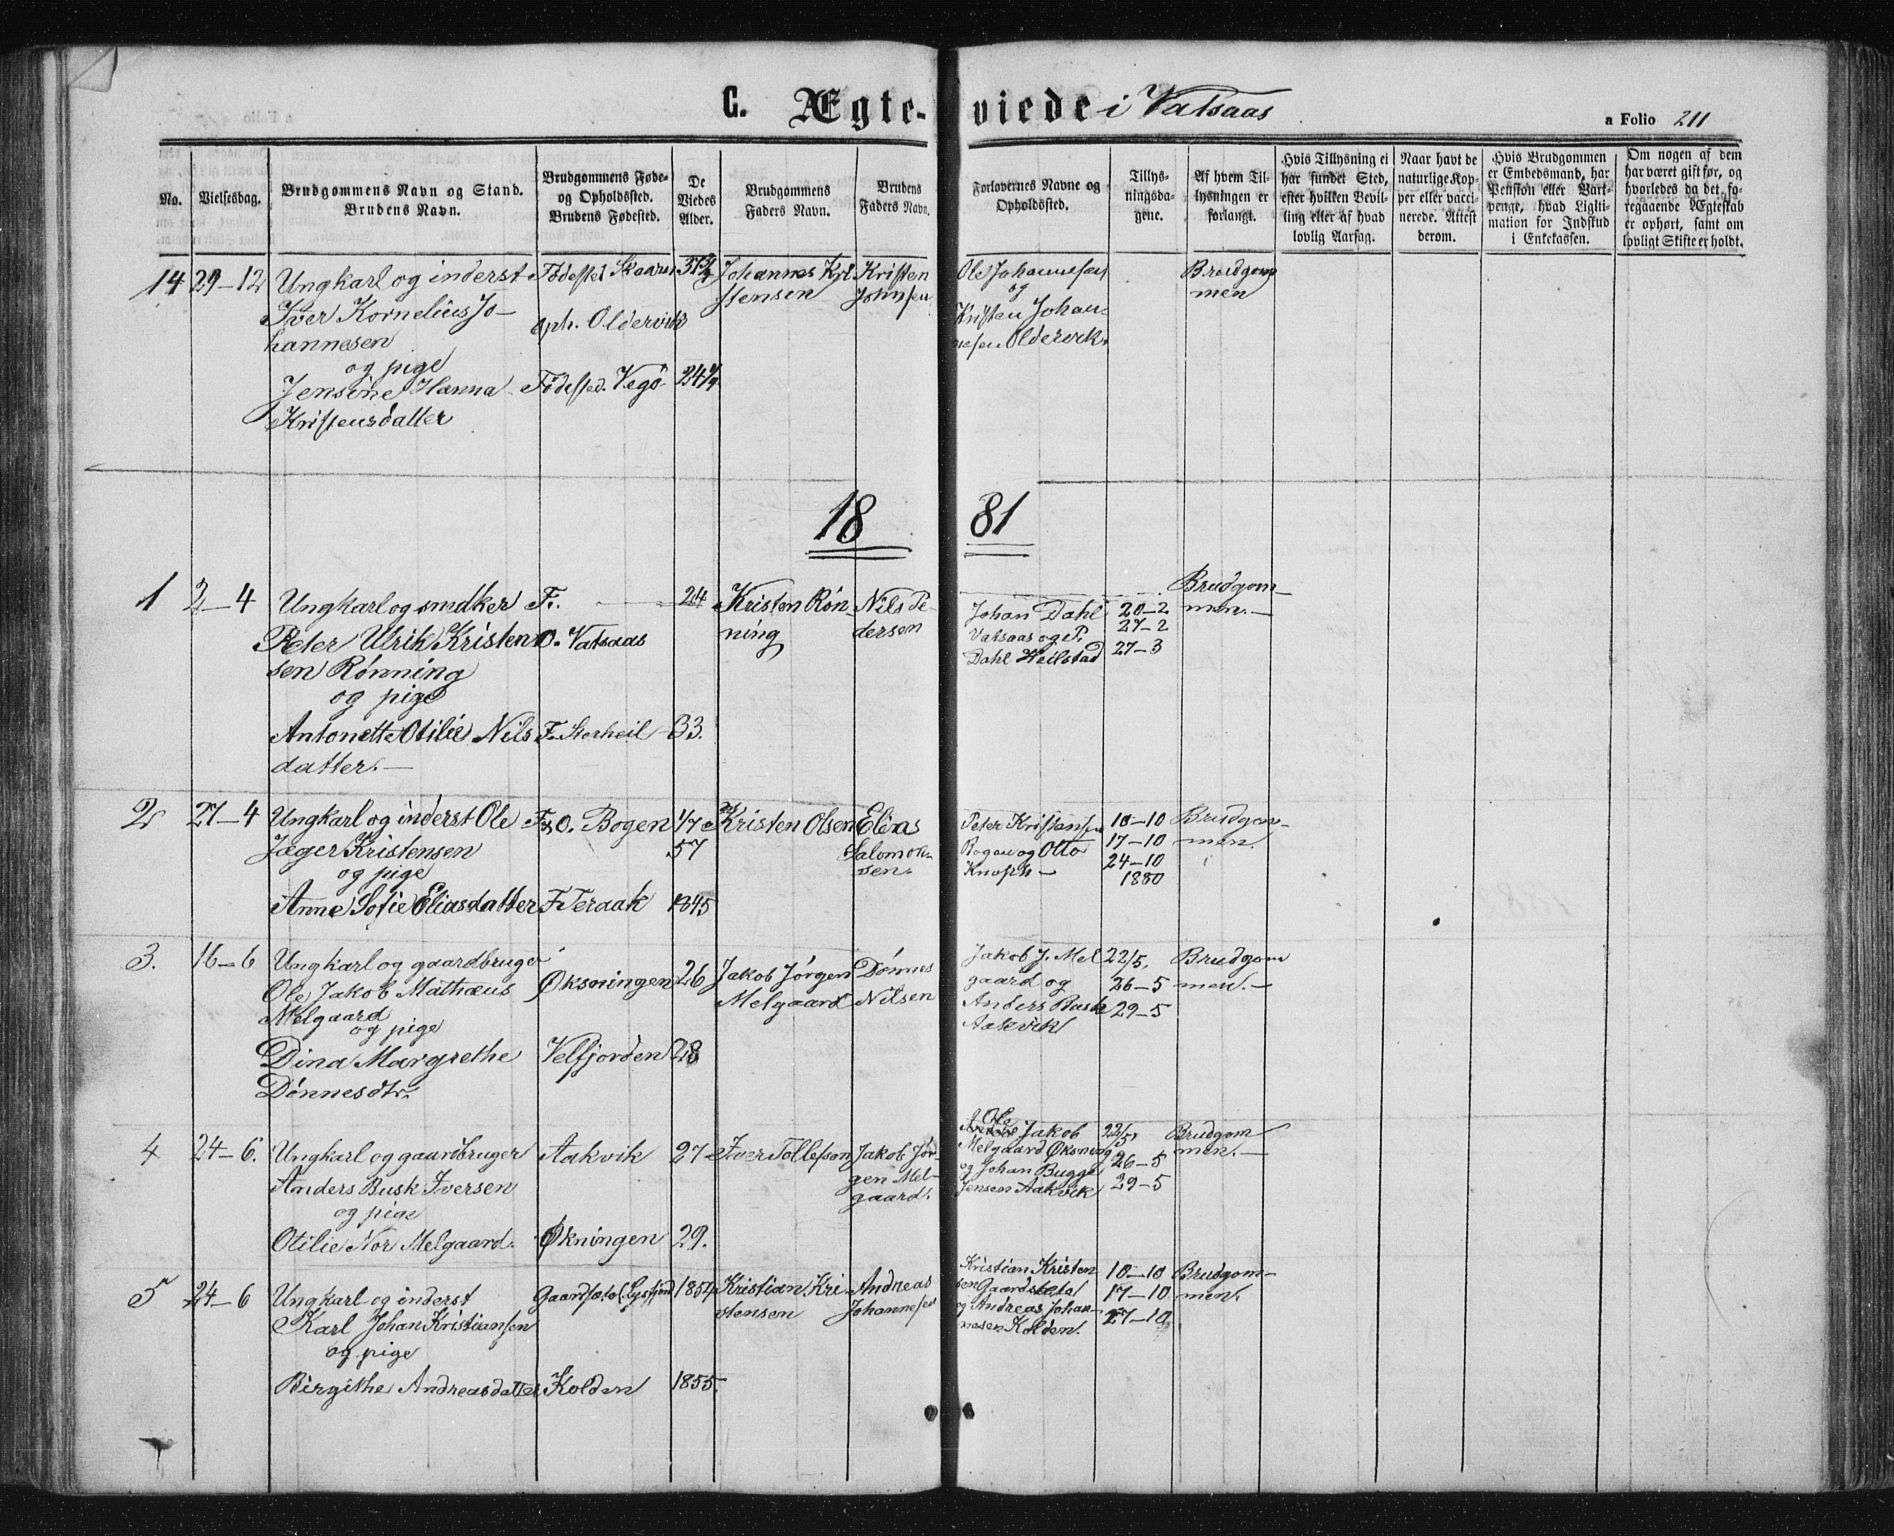 C. Ægte-viede i Vatsaas
a Folio 211
No.
Vielsesdag.
Brudgommens Navn og Stand.
Brudens Navn.
Brudgommens Føde-
og Opholdssted.
Brudens Fødested.
De
Viedes
Alder.
Brudgommens
Faders Navn.
Brudens
Faders Navn.
Forlovernes Navne og
Opholdssted.
Tillys-
ningsda-
gene.
Af hvem Til-
lysningen er
forlangt.
Hvis Tillysning ei
har fundet Sted,
efter hvilken Bevil-
ling eller af hvad
lovlig Aarsag.
Naar havt de
naturlige Kop-
per eller vacci-
nerede. Attest
derom.
Hvis Brudgommen
er Embedsmand, har
Pension eller Vart-
penge, hvad Ligiti-
mation for Indskud
i Enkekassen.
Om nogen af dem
har været gift før, og
hvorledes da det fo-
regaaende Ægteskab
er ophørt, samt om
lovligt Skifte er holdt.
14
29-12
Ungkarl og inderst
Iver Kornelius Jo-
hannesen
og pige
Jensine Hanna
Kristensdatter
Fødested Skaaren
oph. Oldervik
Fødested. Vegö
24 1/4
Johannes Kri
stensen
Kristen
Johnsen
Ole Johannesen
og
Kristen Johan-
nesen Oldervik.
Brudgom
men
1881
1
2-4
Ungkarl og snedker
Peter Ulrik Kristen
sen Rønning
og pige
Antonette Otilie Nils
datter.-
F.
O. Vatsaas
F. Storheil
24
33.
Kristen Røn-
ning
Nils Pe-
dersen
Johan Dahl
Vatsaas og P.
Dahl Heilstad
20-2
27-2
27-3
Brudgom-
men.-
2
27-4
Ungkarl og inderst Ole
Jæger Kristensen
og pige
Anne Sofie Eliasdatter
F. & O. Bogen
F. Teraak
1/7
57
1845
Kristen Olsen
Elias
Salomon-
sen.
Peter Kristansen
Bogen og Otto
Knoph-
10-10
17-10
24-10
1880
Brudgom-
men.
3.
16-6
Ungkarl og gaardbruger
Ole Jakob Mathæus
Melgaard
og pige
Dina Margrethe
Dönnesdtr.
Øksningen
Velfjorden
26
28
Jakob Jørgen
Melgaard
Dönnes
Nilsen
Jakob J. Mel
gaard og
Anders Busk
Aakvik
22/5.
26-5
29-5
Brudgom
men.-
4
24-6.
Ungkarl og gaardbruger
Anders Busk Iversen
og pige
Otilie Nor Melgaard.
Aakvik
Økningen
27
29.
Iver Tollefson
Jakob Jør-
gen Mel-
gaard.
Ole
Jakob
Melgaard Øksning
og Johan Bugge
Jensen Aakvik
22/5
26-5
29-5
Brudgom
men.-
5
24-6
Ungkarl og inderst
Karl Johan Kristiansen
og pige
Birgithe Andreasdatter
Kolden
1854
1855.
Kristian Kri
stensen
Andreas
Johannesen
Kristian Kristen
sen Gaardsæte
og Andreas Johan-
nesen Kolden.
10-10
17-10
27-10
Brudgom-
men.